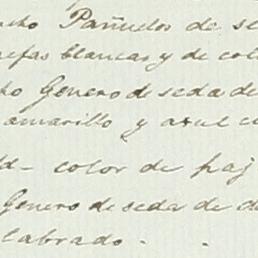 Pañuelos de se
efas blancas y de col
ho Genero de seda de
amarillo y asul c
d- color de paj
Genero de seda de d
labrado.